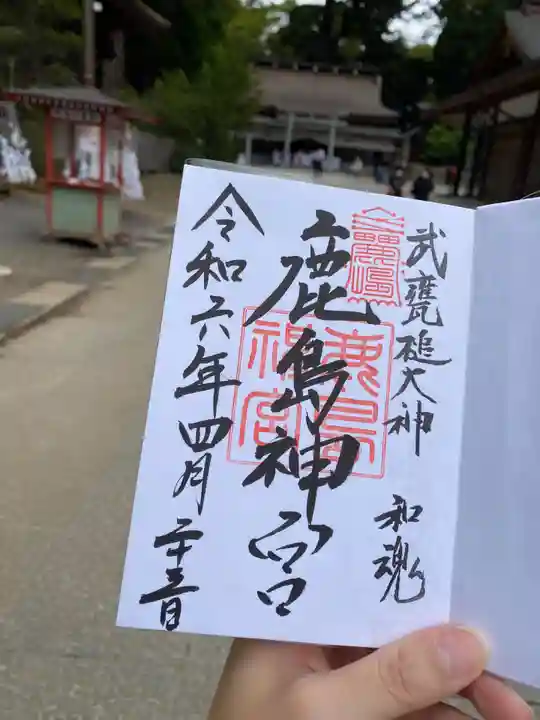 武甕槌大神
和魂
鹿島神宮
鹿島神宮
令和六年四月二十三日